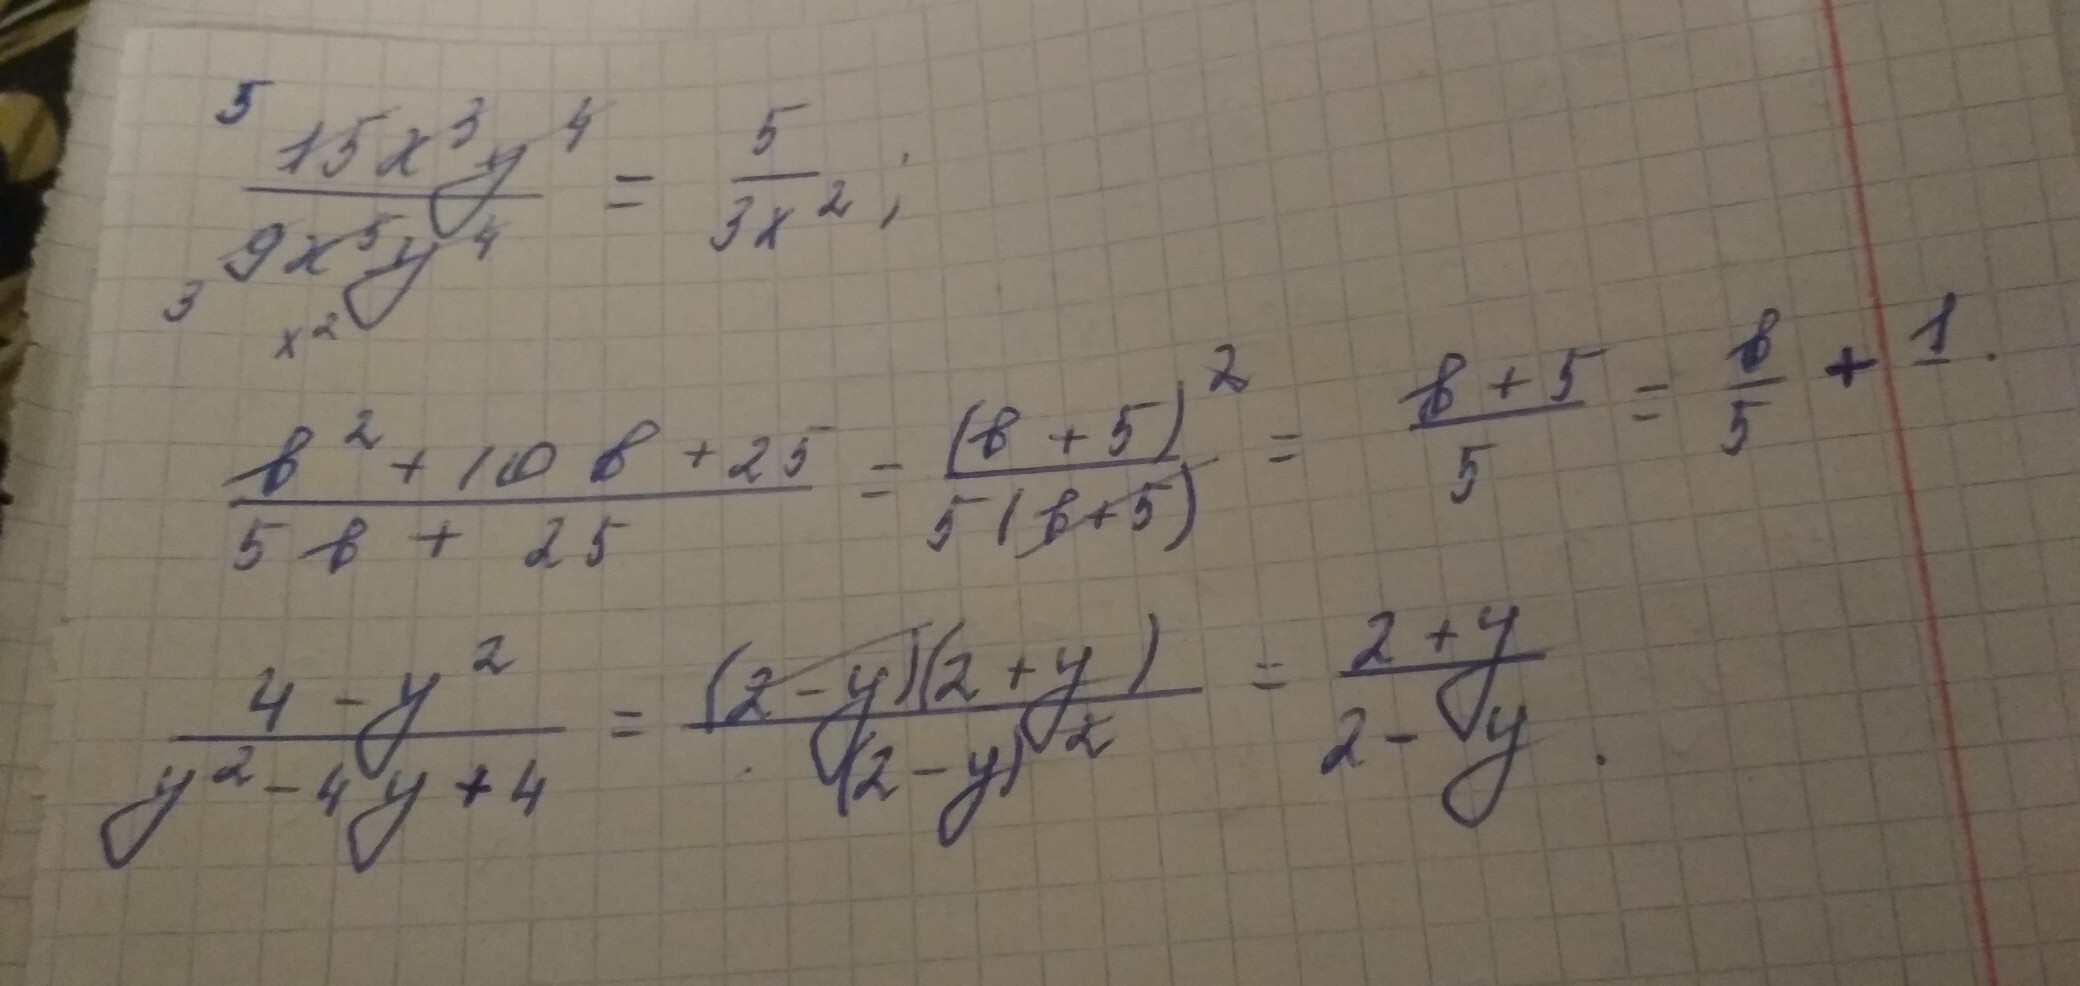 5 15x³y⁴ / 9x⁵y⁴ 3 x² = 5 / 3x² ;
b² + 10b + 25 / 5b + 25 = (b + 5)² / 5(b + 5) = b + 5 / 5 = b / 5 + 1.
4 - y² / y² - 4y + 4 = (2 - y)(2 + y) / (2 - y)² = 2 + y / 2 - y .